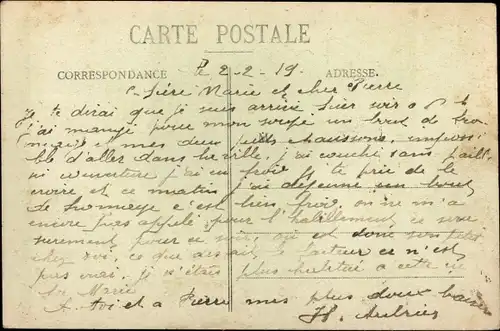 CARTE POSTALE
CORRESPONDANCE le 2-2-19. ADRESSE.
Marie et cher Pierre
Je te dirai que je suis arrivé hier soir a 8 h
j'ai mangé pour mon soupé un bout de fro
mage et mes deux petits chaussons, impossi
ble d'aller dans la ville, j'ai couché sans paill
ni couverture j'ai eu froid je te prie de le
croire et ce matin j'ai déjeuné un bout
de fromage c'est bien froid, on ne m'a
encore pas appelé pour l'habillement ce sera
surement pour ce soir, où est donc son petit
chez soi, ce que disait le facteur ce n'est
pas vrai, je n'étais plus habitué a cette vie
Marie
A toi et a Pierre mes plus doux baisers